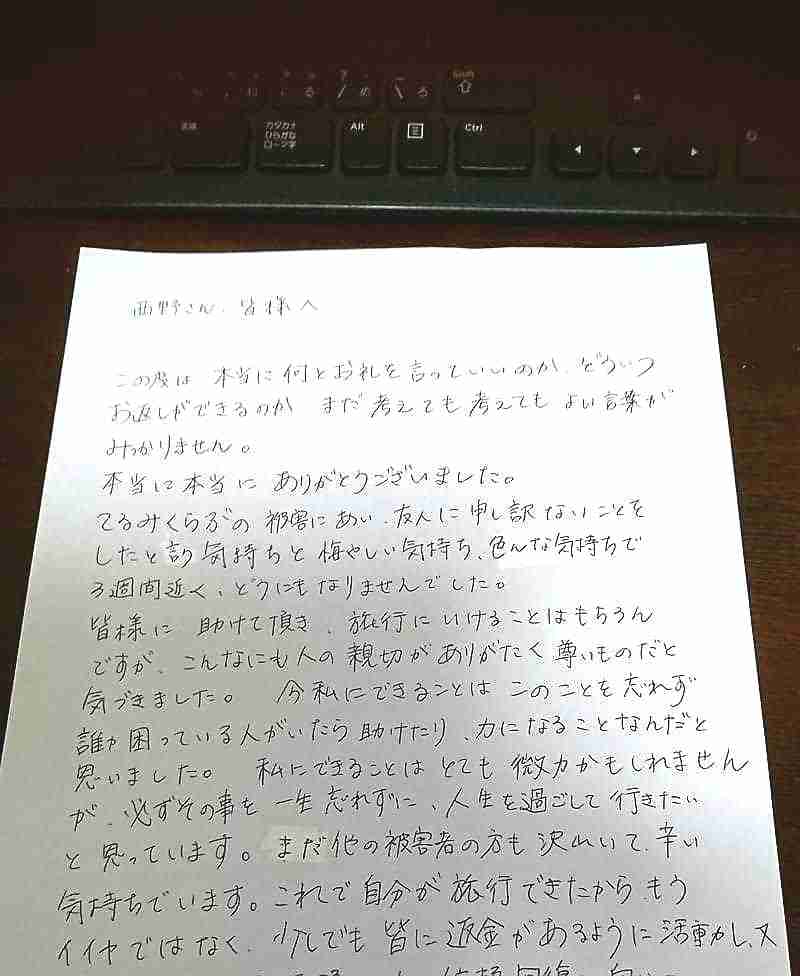 Shift
ろ
め
カタカナ
ひらがな
ローマ字
Alt
Ctrl
西野さん、皆様へ
この度は 本当に何とお礼を言っていいのか、どういう
お返しができるのか まだ考えても考えてもよい言葉が
みつかりません。
本当に本当に ありがとうございました。
てるみくらぶの 被害にあい、友人に申し訳ないことを
したと言う気持ちと悔やしい気持ち、色んな気持ちで
3週間近く、どうにもなりませんでした。
皆様に 助けて頂き、旅行にいけることはもちろん
ですが、こんなにも人の親切がありがたく尊いものだと
気づきました。 今私にできることは このことを忘れず
誰か困っている人がいたら助けたり、力になることなんだと
思いました。 私にできることは とても微力かもしれません
が、必ずその事を一生忘れずに、人生を過ごして行きたい
と思っています。まだ他の被害者の方も沢山いて、辛い
気持ちでいます。これで自分が旅行できたから、もう
イイヤではなく、少しでも皆に返金があるように活動し、又